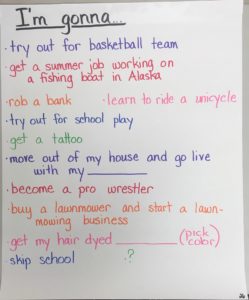 I'm gonna...
· try out for basketball team
· get a summer job working on
a fishing boat in Alaska
· rob a bank · learn to ride a unicycle
· try out for school play
· get a tattoo
· move out of my house and go live
with my ______
· become a pro wrestler
· buy a lawnmower and start a lawn-
mowing business
· get my hair dyed ________ (pick color)
· skip school .?